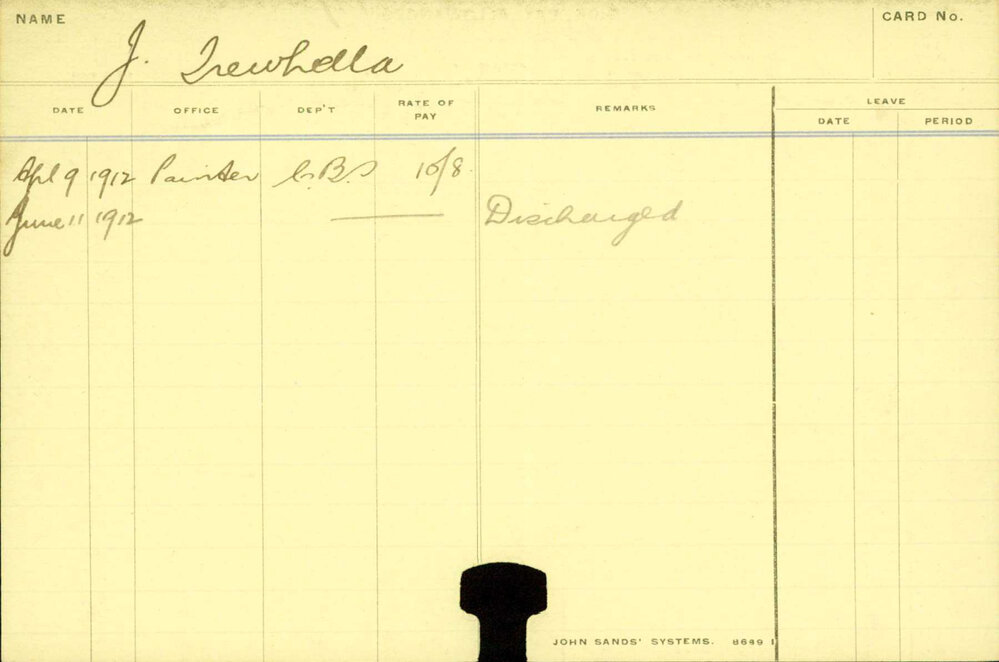 NAME J. Trewhella CARD No.
DATE OFFICE DEP'T RATE OF PAY REMARKS LEAVE
DATE PERIOD
Apl 9 1912 Painter C.B.S 10/8
June 11 1912 — Discharged
JOHN SANDS' SYSTEMS. 8689